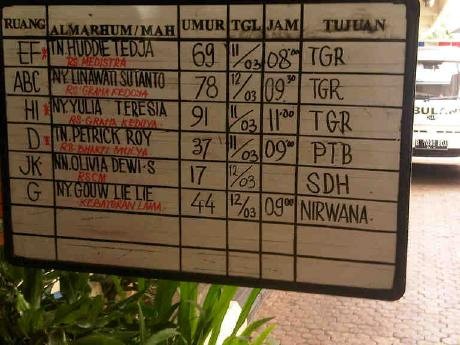 RUANG ALMARHUM/MAH UMUR TGL JAM TUJUAN
EF TN.HUDDIE TEDJA 69 11/03 08.00 TGR
RS MEDISTRA
ABC NY.LINAWATI SUTANTO 78 12/03 09.30 TGR
RS GRAHA KEDOYA
HI NY.YULIA TERESIA 91 11/03 11.00 TGR
RS GRAHA KEDOYA
D TN.PETRICK ROY 37 11/03 09.00 PTB
RS BHAKTI MULYA
JK NN.OLIVIA DEWI-S 17 12/03 SDH
RSCM
G NY.GOUW LIE LIE 44 12/03 09.00 NIRWANA.
KEBAYORAN LAMA